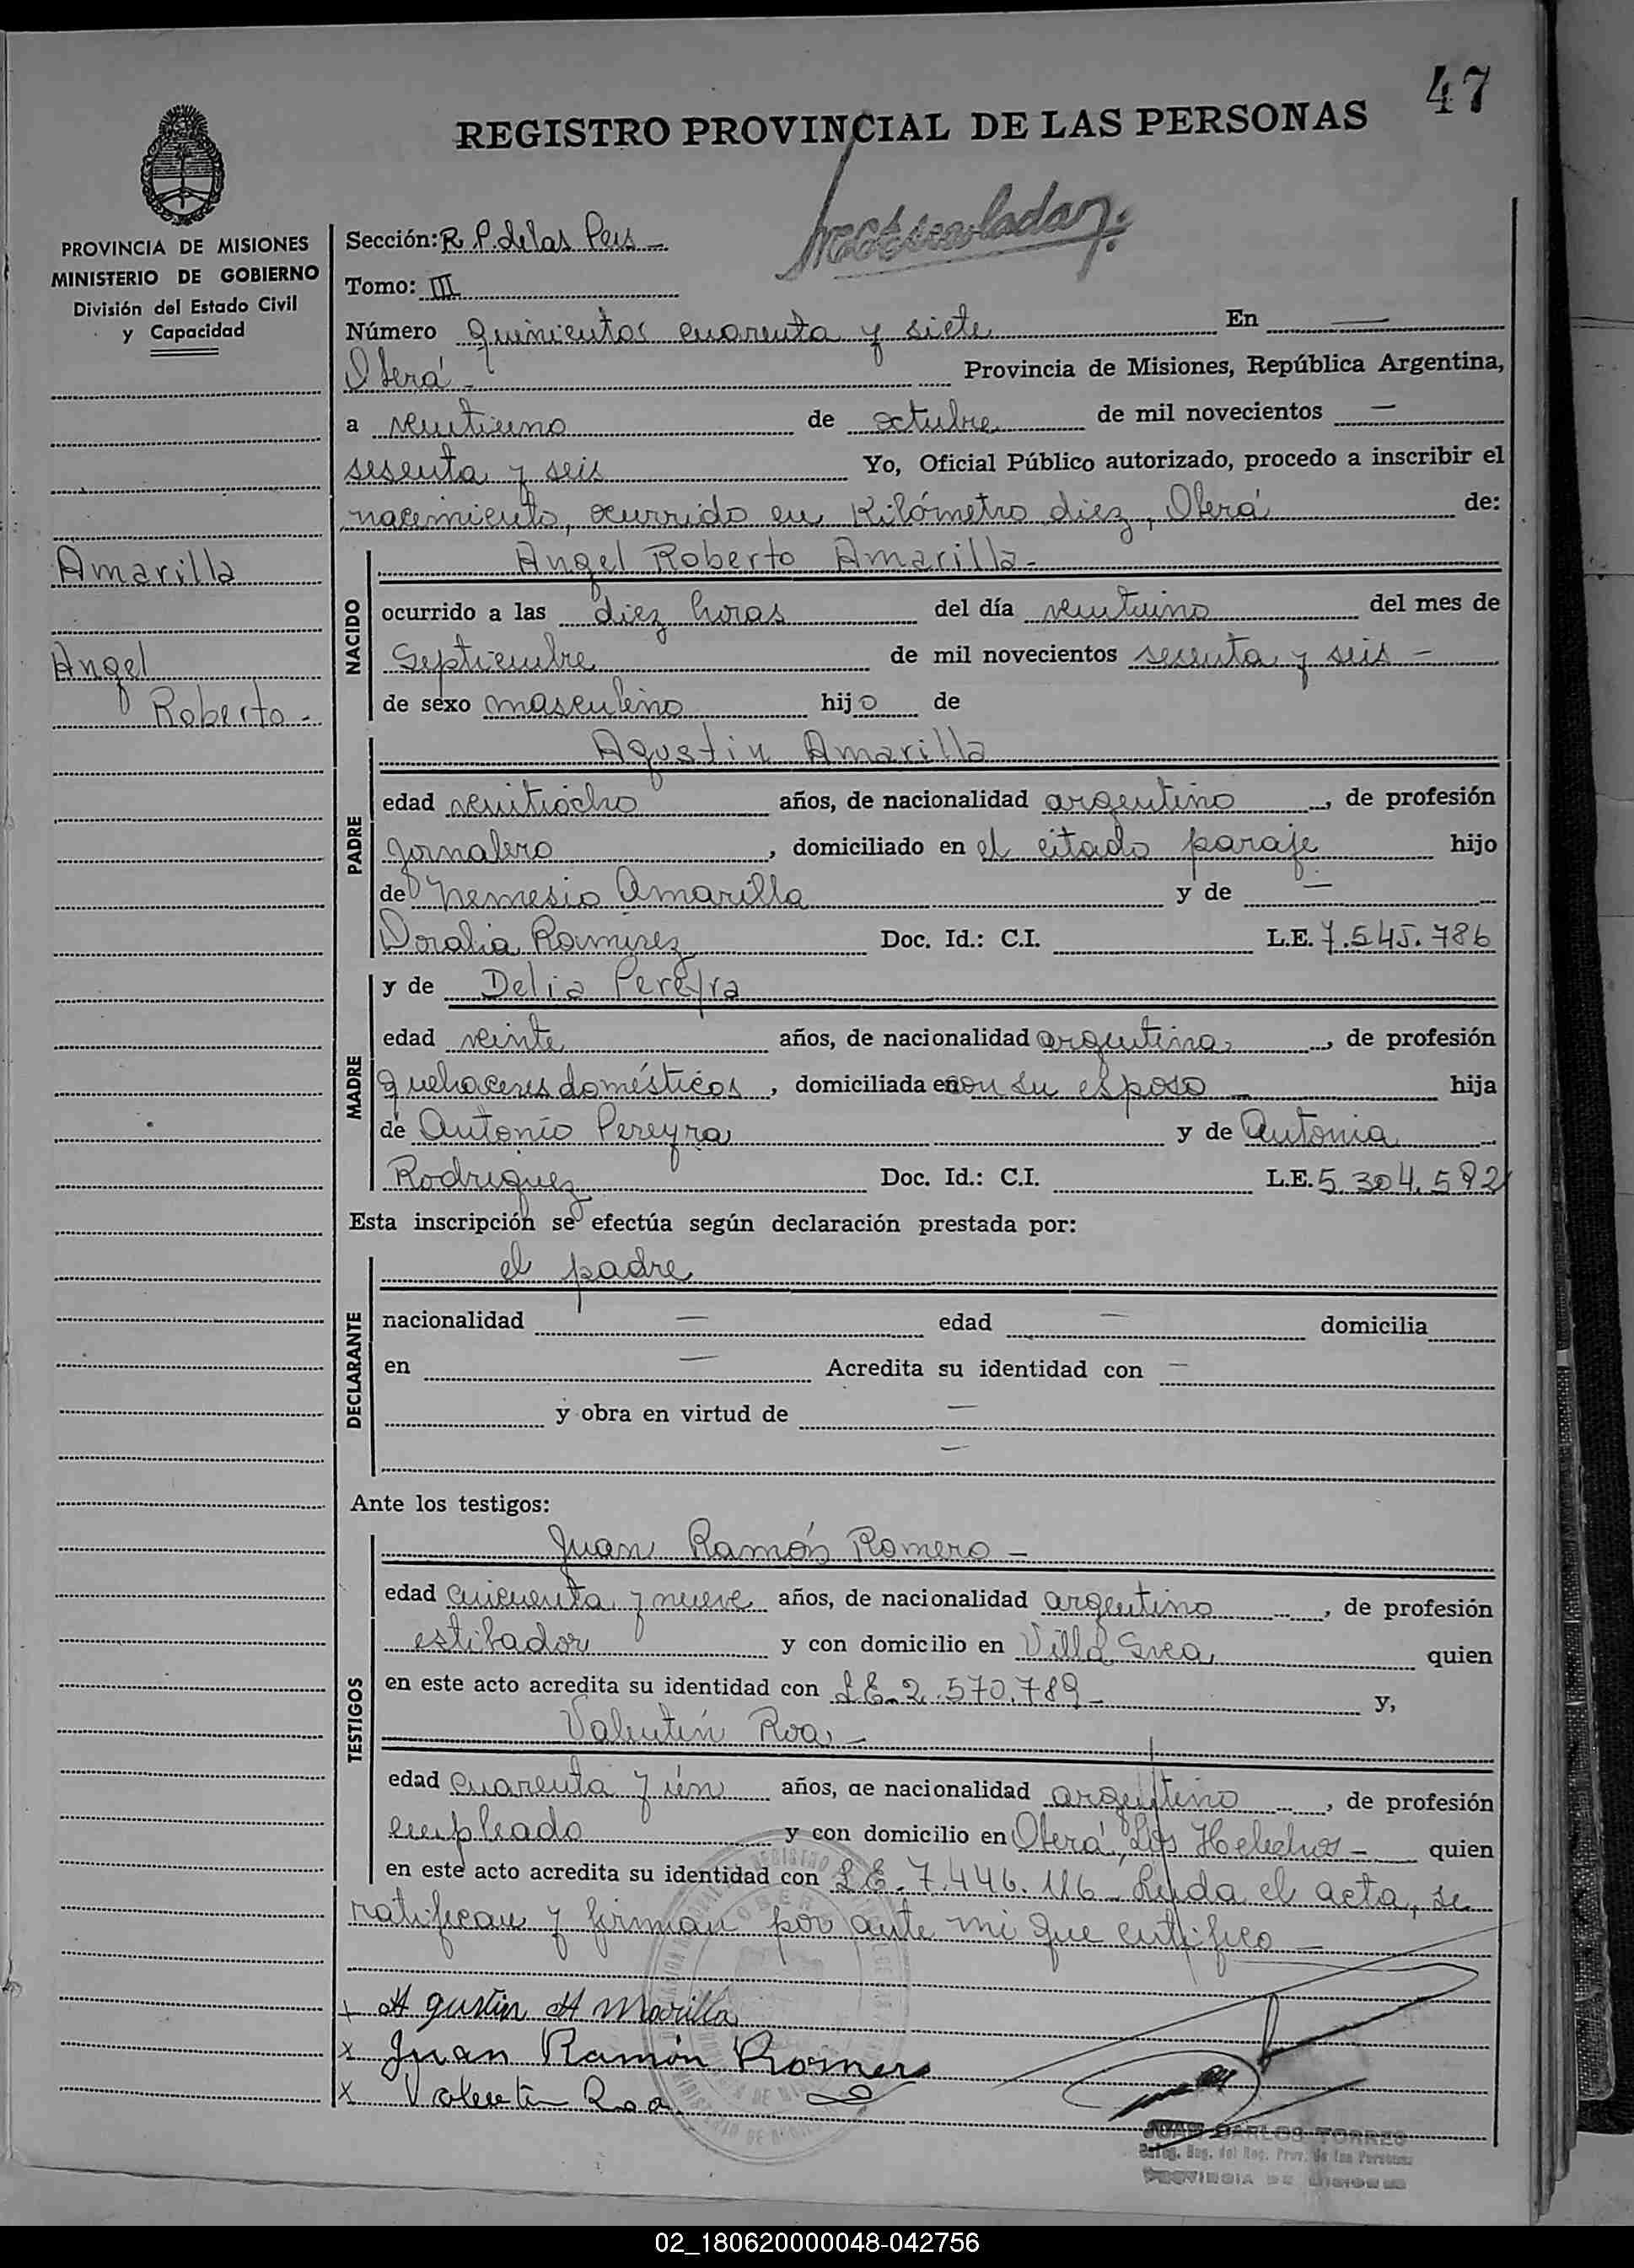 47
REGISTRO PROVINCIAL DE LAS PERSONAS
PROVINCIA DE MISIONES
MINISTERIO DE GOBIERNO
División del Estado Civil
y Capacidad
Amarilla
Angel
Roberto -
Sección: R. P. de las Pers -
Tomo: III
Número quinientos cuarenta y siete En —
Oberá - Provincia de Misiones, República Argentina,
a veintiuno de octubre de mil novecientos —
sesenta y seis Yo, Oficial Público autorizado, procedo a inscribir el
nacimiento, ocurrido en Kilómetro diez, Oberá de:
NACIDO
Angel Roberto Amarilla -
ocurrido a las diez horas del día veintiuno del mes de
Septiembre de mil novecientos sesenta y seis -
de sexo masculino hijo de
PADRE
Agustin Amarilla
edad veintiocho años, de nacionalidad argentino, de profesión
jornalero, domiciliado en el citado paraje hijo
de Nemesio Amarilla y de —
Doralia Ramirez Doc. Id.: C.I. L.E. 7.545.786
MADRE
y de Delia Pereyra
edad veinte años, de nacionalidad argentina, de profesión
quehaceres domésticos, domiciliada en con su esposo - hija
de Antonio Pereyra y de Antonia
Rodriguez Doc. Id.: C.I. L.E. 5.304.592
Esta inscripción se efectúa según declaración prestada por:
DECLARANTE
el padre
nacionalidad — edad — domicilia
en — Acredita su identidad con —
y obra en virtud de —
—
Ante los testigos:
TESTIGOS
Juan Ramón Romero -
edad cincuenta y nueve años, de nacionalidad argentino, de profesión
estibador y con domicilio en Villa Svea quien
en este acto acredita su identidad con L.E. 2.570.789 - y,
Valentín Roa -
edad cuarenta y un años, de nacionalidad argentino, de profesión
empleado y con domicilio en Oberá, Los Helechos - quien
en este acto acredita su identidad con L.E. 7.446.116 - Leída el acta, se
ratifican y firman por ante mi que certifico -
x Agustin Amarilla
x Juan Ramón Romero
x Valentin Roa
JUAN CARLOS TORRES
PROVINCIA DE MISIONES
02_180620000048-042756